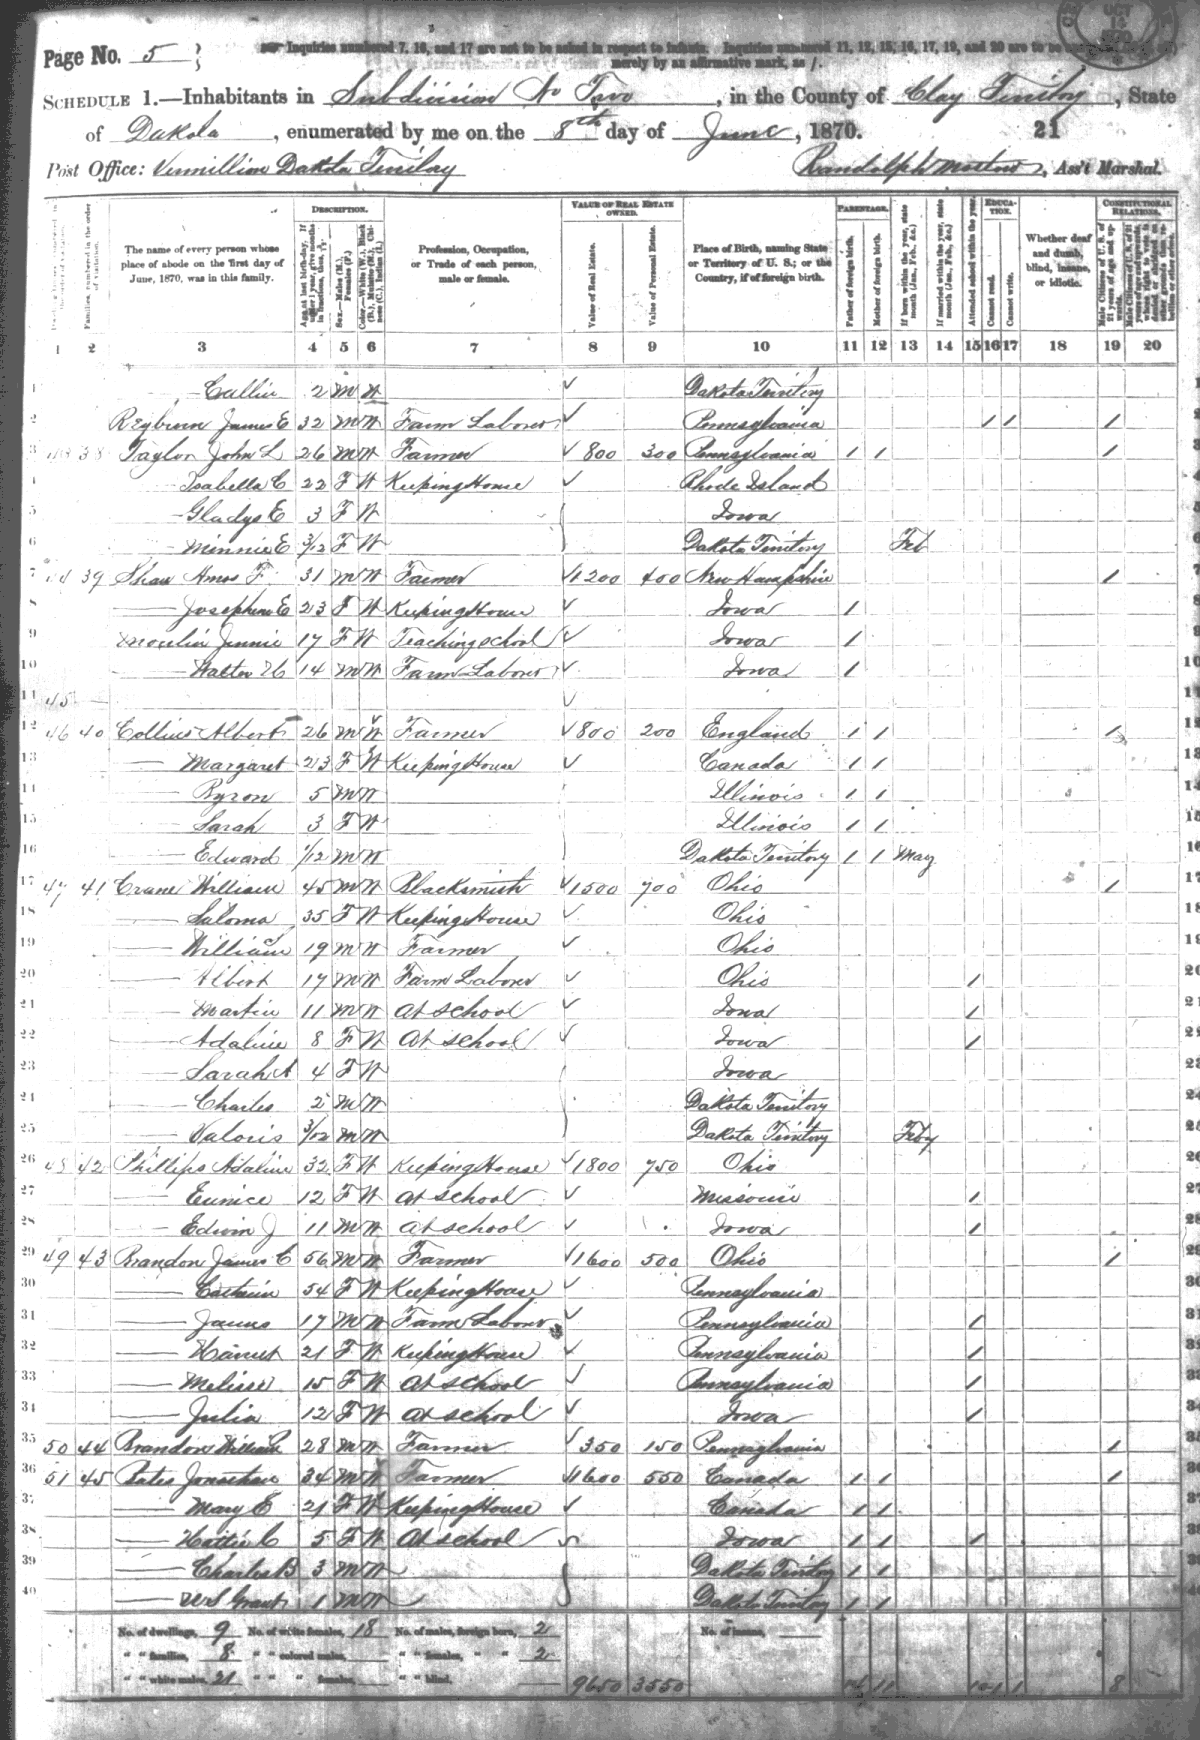 OCT
Page No. 5
Inquiries numbered 7, 16, and 17 are not to be asked in respect to infants. Inquiries numbered 11, 12, 15, 16, 17, 19, and 20 are to be
merely by an affirmative mark, as /.
SCHEDULE 1.—Inhabitants in Subdivision No Two, in the County of Clay Territory, State
of Dakota, enumerated by me on the 8th day of June, 1870. 21
Post Office: Vermillion Dakota Territory Randolph, Ass't Marshal.
DESCRIPTION. VALUE OF REAL ESTATE OWNED. PARENTAGE. EDUCATION. CONSTITUTIONAL RELATIONS.
Families, numbered in the order of visitation.
The name of every person whose place of abode on the first day of June, 1870, was in this family.
Sex.—Males (M.), Females (F.)
Profession, Occupation, or Trade of each person, male or female.
Value of Real Estate.
Value of Personal Estate.
Place of Birth, naming State or Territory of U. S.; or the Country, if of foreign birth.
Father of foreign birth.
Mother of foreign birth.
If born within the year, state month (Jan., Feb., &c.)
If married within the year, state month (Jan., Feb., &c.)
Attended school within the year.
Cannot read.
Cannot write.
Whether deaf and dumb, blind, insane, or idiotic.
1 2 3 4 5 6 7 8 9 10 11 12 13 14 15 16 17 18 19 20
1 — 2 M W Dakota Territory
2 Reyburn James E 32 M W Farm Laborer Pennsylvania / / /
3 38 Taylor John L 26 M W Farmer 800 300 Pennsylvania / / /
4 — Isabella C 22 F W Keeping House Rhode Island
5 — Gladys E 3 F W Iowa
6 — Minnie E 3/12 F W Dakota Territory Feb
7 39 Shaw Amos F 31 M W Farmer 1200 400 New Hampshire /
8 — Josephine E 23 F W Keeping House Iowa /
9 Jennie 17 F W Teaching school Iowa /
10 — Walter H 14 M W Farm Laborer Iowa /
11 45 —
12 46 40 Collins Albert 26 M W Farmer 800 200 England / / /
13 — Margaret 23 F W Keeping House Canada / /
14 — Byron 5 M W Illinois / /
15 — Sarah 3 F W Illinois / /
16 — Edward 1/12 M W Dakota Territory / / May
17 47 41 Crane William 45 M W Blacksmith 1500 700 Ohio /
18 — Saloma 35 F W Keeping House Ohio
19 — William 19 M W Farmer Ohio
20 — Albert 17 M W Farm Laborer Ohio /
21 — Martin 11 M W At school Iowa /
22 — Adaline 8 F W At school Iowa /
23 — Sarah A 4 F W Iowa
24 — Charles 2 M W Dakota Territory
25 — Valoris 3/12 M W Dakota Territory Feby
26 48 42 Phillips Adaline 32 F W Keeping House 1800 750 Ohio
27 — Eunice 12 F W At school Missouri /
28 — Edwin J 11 M W At school Iowa /
29 49 43 Brandon James C 56 M W Farmer 1600 500 Ohio /
30 — 54 F W Keeping House Pennsylvania
31 — James 17 M W Farm Laborer Pennsylvania /
32 — Harriet 21 F W Keeping House Pennsylvania /
33 — Melissa 15 F W At school Pennsylvania /
34 — Julia 12 F W At school Iowa /
35 50 44 Brandon William 28 M W Farmer 350 150 Pennsylvania /
36 51 45 Bates Jonathan 34 M W Farmer 1600 550 Canada / / /
37 — Mary E 21 F W Keeping House Canada / /
38 — Hattie C 5 F W At school Iowa / / /
39 — Charles B 3 M W Dakota Territory / /
40 — U S Grant 1 M W Dakota Territory / /
No. of dwellings, 9 No. of white females, 18 No. of males, foreign born, 2 No. of insane,
" " families, 8 " " colored males, " " females, " " 2
" " white males, 21 " " " females, " " blind, 9650 3550 14 11 10 1 1 8